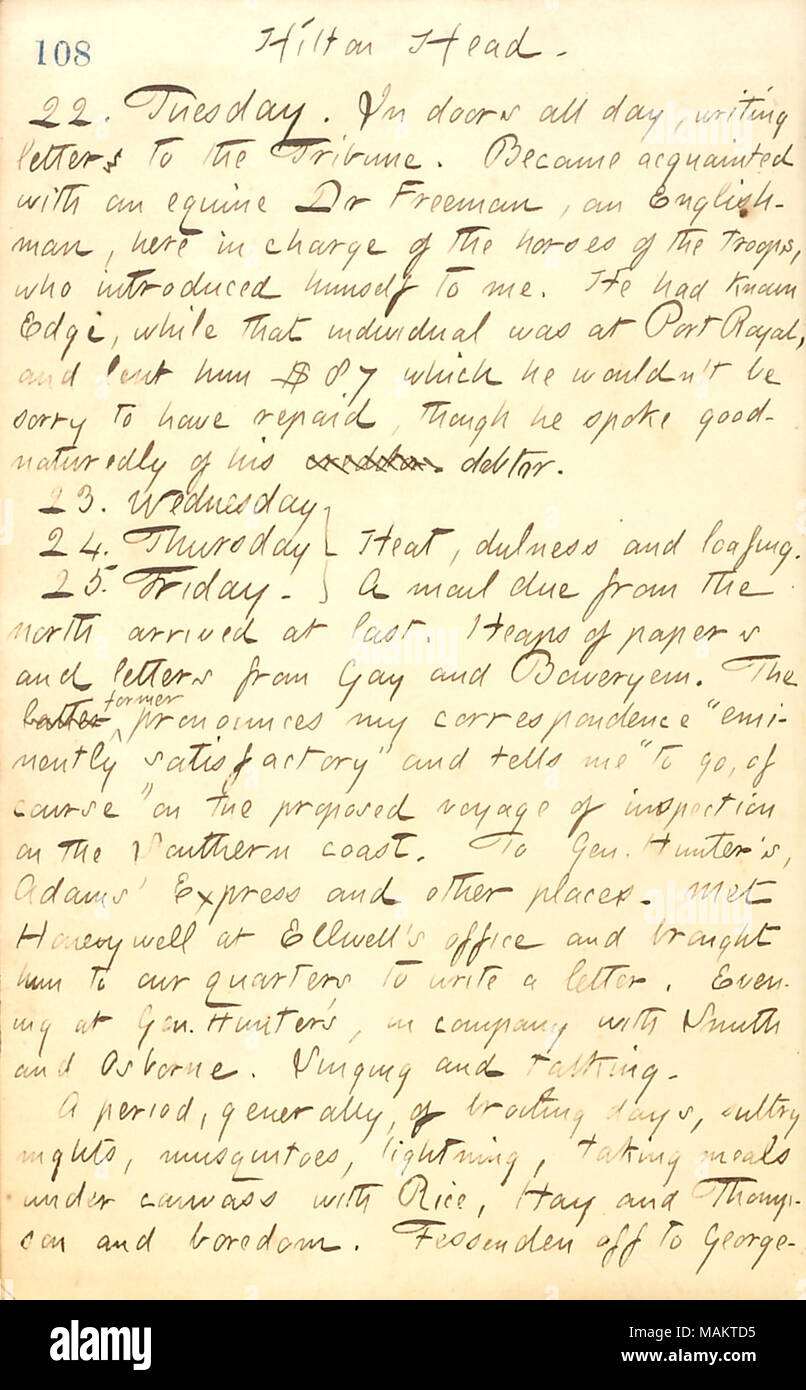 108
Hilton Head.
22. Tuesday. In doors all day, writing
letters to the Tribune. Became acquainted
with an equine Dr Freeman, an English-
man, here in charge of the horses of the troops,
who introduced himself to me. He had known
Edge, while that individual was at Port Royal,
and lent him $87 which he wouldn't be
sorry to have repaid, though he spoke good-
naturedly of his creditor. debtor.
23. Wednesday
24. Thursday Heat, dulness and loafing.
25. Friday. A mail due from the
north arrived at last. Heaps of papers
and letters from Gay and Boweryem. The
latter former pronounces my correspondence "emi-
nently satisfactory" and tells me "to go, of
course" on the proposed voyage of inspection
on the Southern coast. To Gen. Hunter's,
Adams' Express and other places. Met
Honeywell at Ellwell's office and brought
him to our quarters to write a letter. Even-
ing at Gen. Hunter's, in company with Smith
and Osborne. Singing and talking.
A period, generally, of broiling days, sultry
nights, musquitoes, lightning, taking meals
under canvass with Rice, Hay and Thomp-
son and boredom. Fessenden off to George-
alamy
Image ID: MAKTD5
www.alamy.com